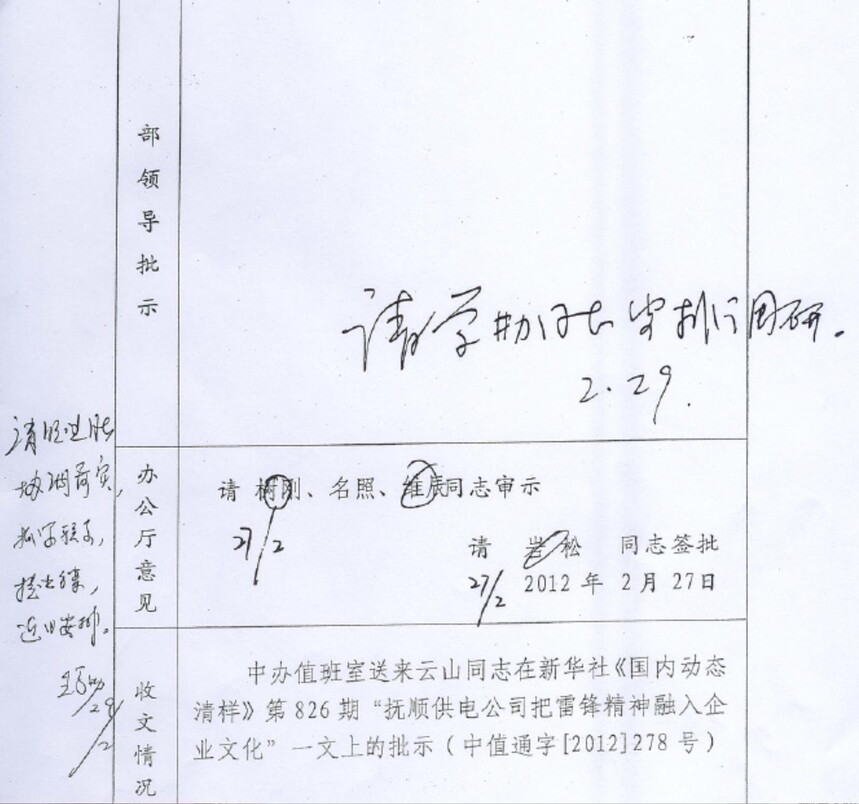 部领导批示
请学办同志安排调研。
2.29.
办公厅意见
请 树刚、名照、维辰同志审示
27/2
请 岩松 同志签批
27/2 2012 年 2 月 27日
近日安排。
29/2
收文情况
中办值班室送来云山同志在新华社《国内动态
清样》第 826 期“抚顺供电公司把雷锋精神融入企
业文化”一文上的批示(中值通字[2012]278 号)